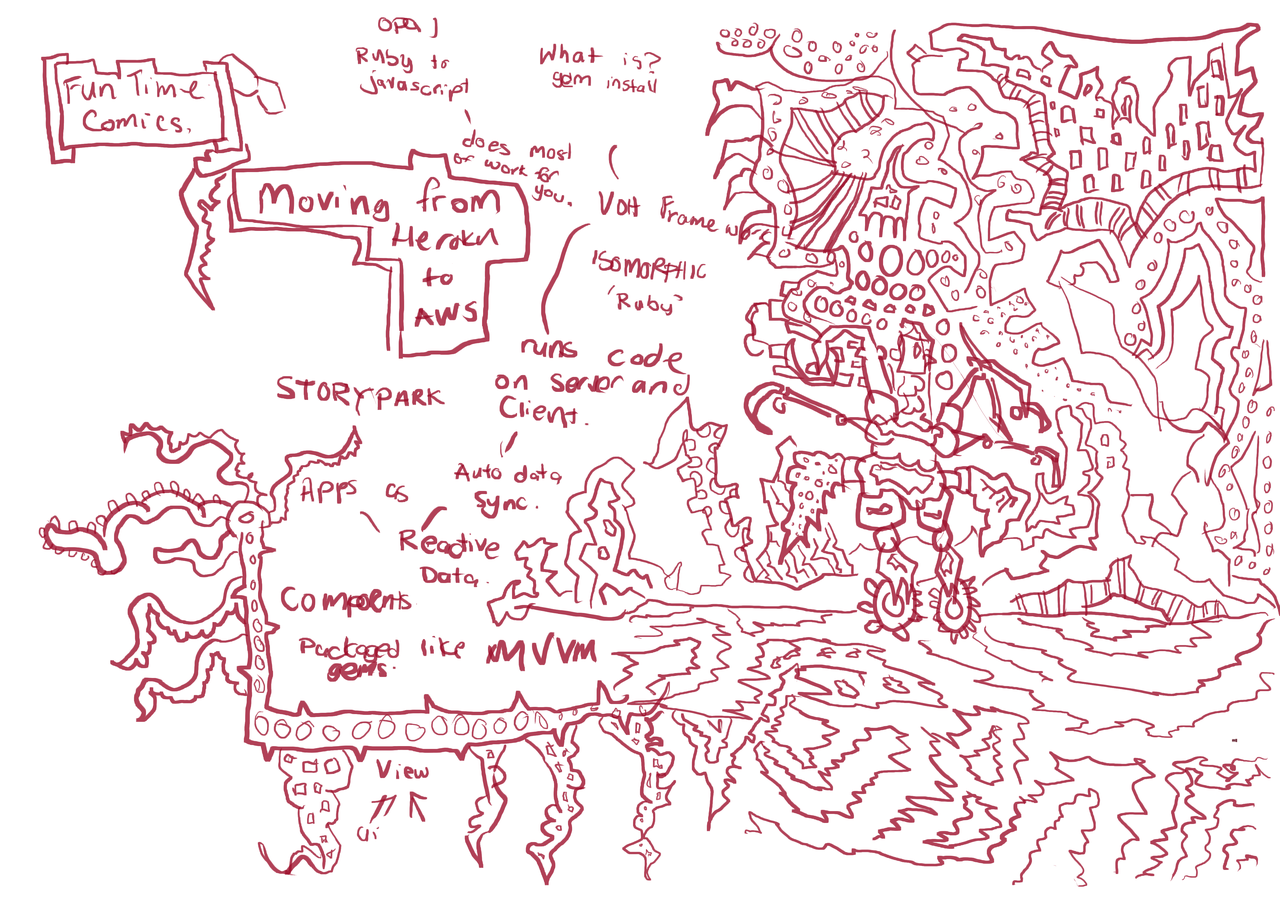 Fun Time
Comics.
Opal
Ruby to
javascript
does most
of work for
you.
What is?
gem install
Volt Framework
ISOMORPHIC
'Ruby'
Moving from
Heroku
to
AWS
runs code
on server and
Client.
STORYPARK
Auto data
Sync.
Apps as
Reactive
Data.
Componts
Packaged like
gems.
MVVM
View
Ui